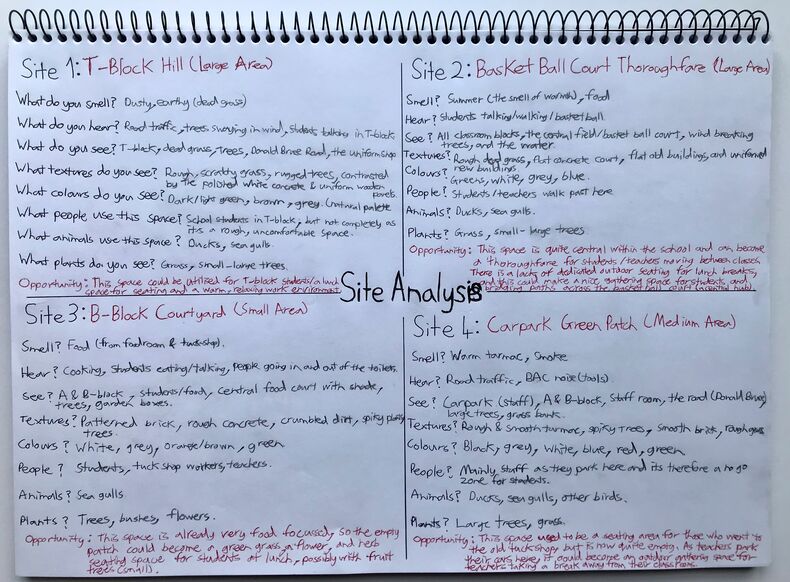 Site 1: T-Block Hill (Large Area)
What do you smell? Dusty, earthy (dead grass)
What do you hear? Road traffic, trees swaying in wind, students talking in T-block
What do you see? T-block, dead grass, trees, Donald Bruce Road, the uniform shop
What textures do you see? Rough, scratty grass, rugged trees, contrasted
by the polished white concrete & uniform wooden
panels.
What colours do you see? Dark/light green, brown, grey (natural palette
What people use this space? School students in T-block, but not completely as
it's a rough, uncomfortable space.
What animals use this space? Ducks, sea gulls.
What plants do you see? Grass, small-large trees.
Opportunity: This space could be utilized for T-block students/a lunch
space for seating and a warm, relaxing work environment.
Site 2: Basket Ball Court Thoroughfare (Large Area)
Smell? Summer (the smell of warmth), food
Hear? Students talking/walking/basketball.
See? All classroom blocks, the central field/basket ball court, wind breaking
trees, and the water.
Textures? Rough dead grass, flat concrete court, flat old buildings, and uniformed
new buildings.
Colours? Greens, white, grey, blue.
People? Students/teachers walk past here
Animals? Ducks, sea gulls.
Plants? Grass, small-large trees
Opportunity: This space is quite central within the school and can become
a thoroughfare for students/teachers moving between classes.
There is a lack of dedicated outdoor seating for lunch breaks,
and this could make a nice gathering space for students and
bridging paths across the basket ball court (central hub)
Site Analysis
Site 3: B-Block Courtyard (Small Area)
Smell? Food (from foodroom & tuckshop).
Hear? Cooking, students eating/talking, people going in and out of the toilets.
See? A & B-block, students/food, central food court with shade,
trees, garden boxes.
Textures? Patterned brick, rough concrete, crumbled dirt, spiky plants
trees.
Colours? White, grey, orange/brown, green
People? Students, tuckshop workers, teachers.
Animals? Sea gulls
Plants? Trees, bushes, flowers.
Opportunity: This space is already very food focussed, so the empty
patch could become a green grass, a flower, and herb
seating space for students at lunch, possibly with fruit
trees (small).
Site 4: Carpark Green Patch (Medium Area)
Smell? Warm tarmac, smoke
Hear? Road traffic, BAC noise (tools)
See? Carpark (staff), A & B-block, staff room, the road (Donald Bruce)
large trees, grass bank.
Textures? Rough & smooth turmac, spiky trees, smooth brick, rough grass
Colours? Black, grey, white, blue, red, green
People? Mainly staff as they park here and its therefore a no go
zone for students.
Animals? Ducks, sea gulls, other birds.
Plants? Large trees, grass.
Opportunity: This space used to be a seating area for those who went to
the old tuckshop, but is now quite empty. As teachers park
their cars here, it could become an outdoor gathering space for
teachers taking a break away from their classrooms.